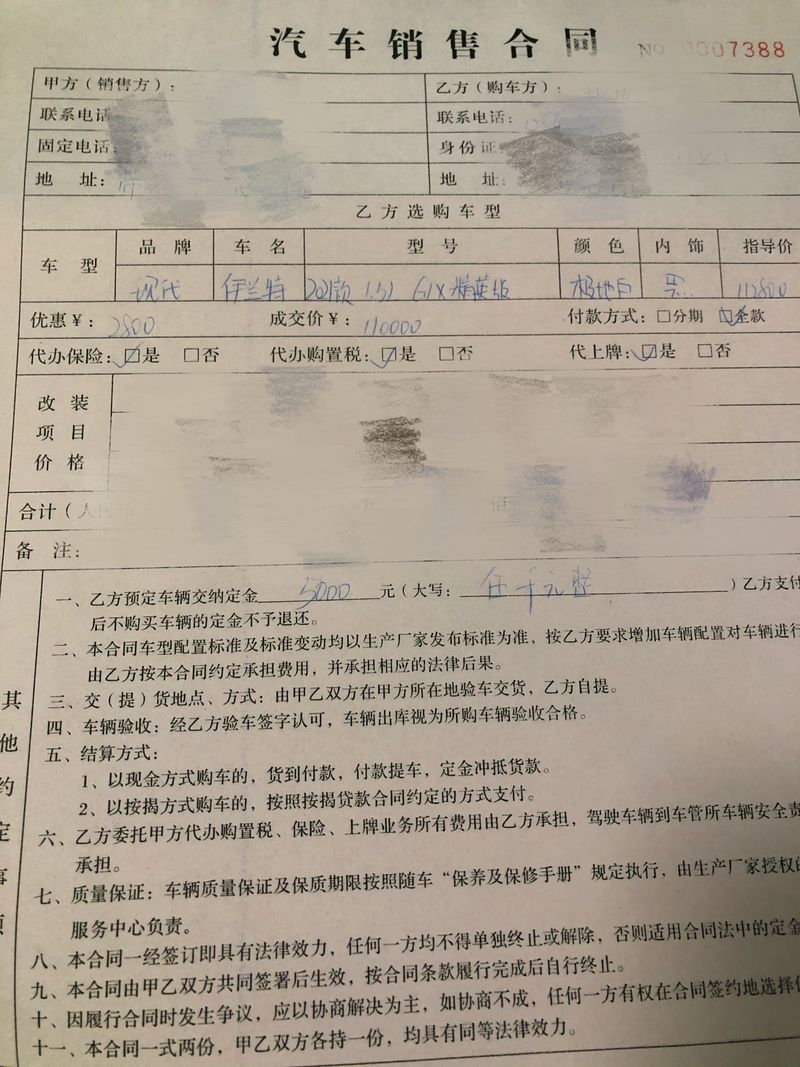 汽车销售合同 No 0007388
甲方（销售方）： 乙方（购车方）：
联系电话 联系电话：
固定电话： 身份证
地 址： 地 址：
乙方选购车型
车 型 品 牌 车 名 型 号 颜 色 内 饰 指导价
现代 伊兰特 2021款 1.5L GLX精英版 极地白 黑 112800
优惠￥： 2800 成交价￥： 110000 付款方式：□分期 ☑全款
代办保险：☑是 □否 代办购置税：☑是 □否 代上牌：☑是 □否
改 装
项 目
价 格
合计（人
备 注：
一、乙方预定车辆交纳定金 5000 元（大写： 伍千元整 ）乙方支付
后不购买车辆的定金不予退还。
二、本合同车型配置标准及标准变动均以生产厂家发布标准为准，按乙方要求增加车辆配置对车辆进行
由乙方按本合同约定承担费用，并承担相应的法律后果。
三、交（提）货地点、方式：由甲乙双方在甲方所在地验车交货，乙方自提。
四、车辆验收：经乙方验车签字认可，车辆出库视为所购车辆验收合格。
五、结算方式：
1、以现金方式购车的，货到付款，付款提车，定金冲抵货款。
2、以按揭方式购车的，按照按揭贷款合同约定的方式支付。
六、乙方委托甲方代办购置税、保险、上牌业务所有费用由乙方承担，驾驶车辆到车管所车辆安全责
承担。
七、质量保证：车辆质量保证及保质期限按照随车“保养及保修手册”规定执行，由生产厂家授权的
服务中心负责。
八、本合同一经签订即具有法律效力，任何一方均不得单独终止或解除，否则适用合同法中的定金
九、本合同由甲乙双方共同签署后生效，按合同条款履行完成后自行终止。
十、因履行合同时发生争议，应以协商解决为主，如协商不成，任何一方有权在合同签约地选择
十一、本合同一式两份，甲乙双方各持一份，均具有同等法律效力。
其
他
约
定
事
项